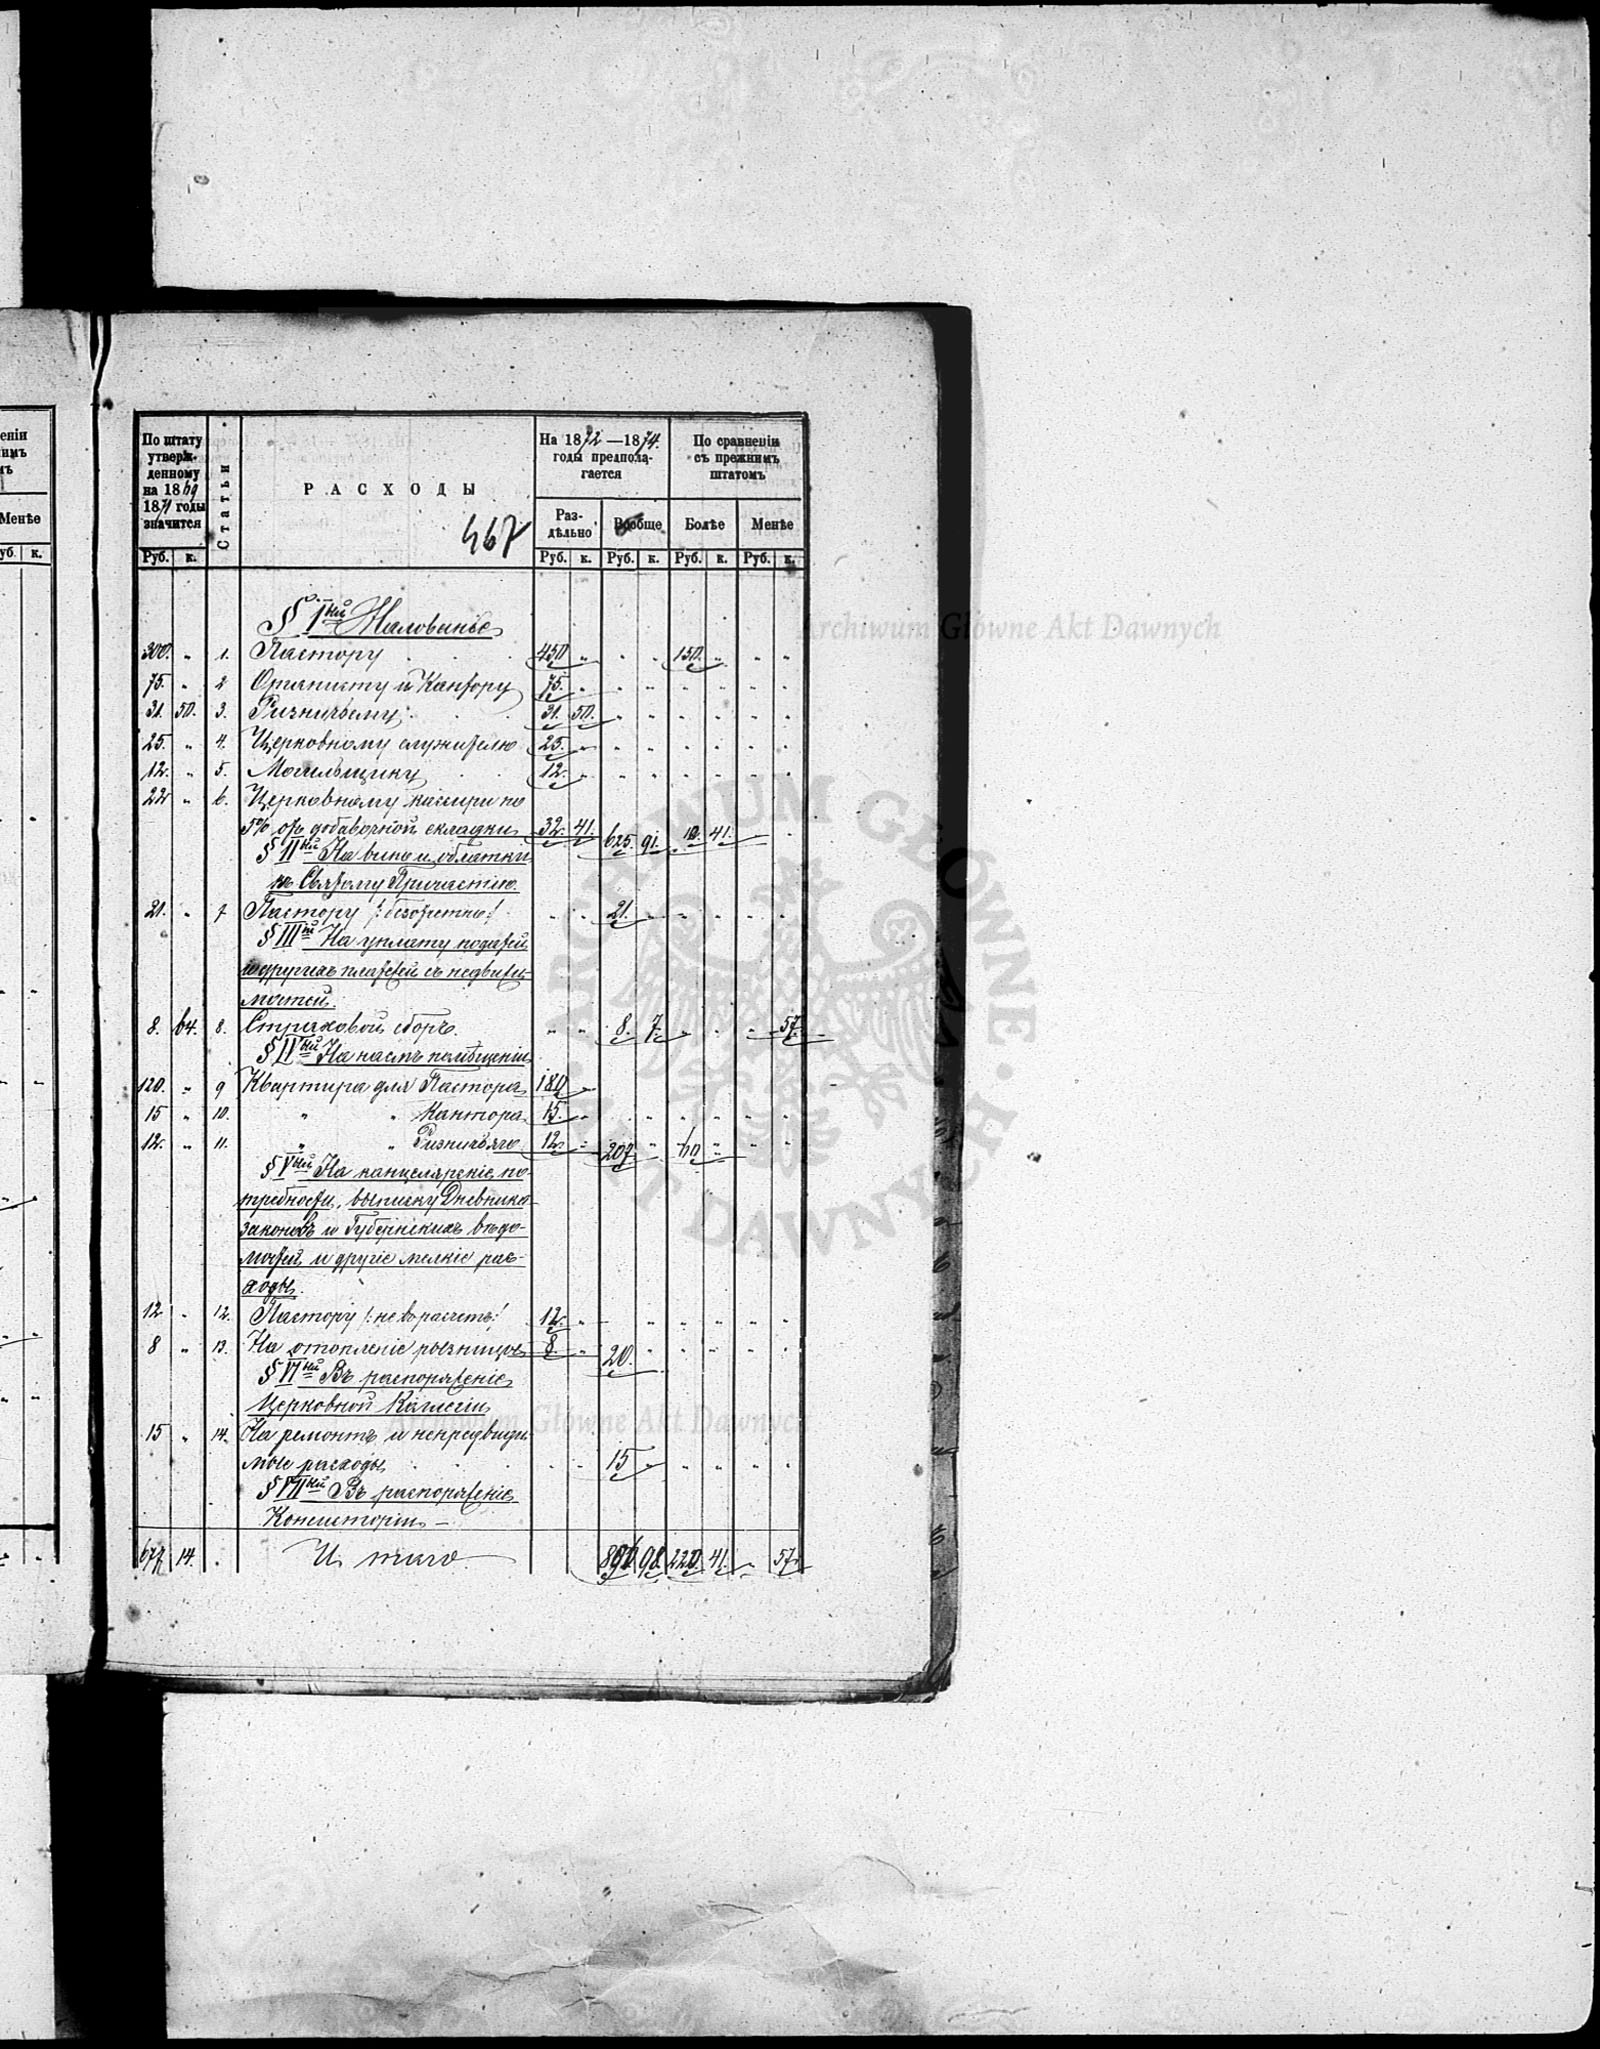 еніи
имъ
ъ
Менѣе
уб. к.
По штату
утверж-
денному
на 1869
1871 годы
значится
Статьи
РАСХОДЫ
467
На 1872—1874.
годы предпола-
гается
По сравненію
съ прежнимъ
штатомъ
Раз-
дѣльно
Вообще
Болѣе
Менѣе
Руб. к. Руб. к. Руб. к. Руб. к. Руб. к.
§ Iный Жалованье
300. „ 1. Пастору 450 „ „ „ 150. „ „ „
75. „ 2 Органисту и Кантору 75. „ „ „ „ „ „ „
31. 50. 3. Ризничему 31. 50. „ „ „ „ „ „
25. „ 4. Церковному служителю 25. „ „ „ „ „ „ „
12. „ 5. Могильщику 12. „ „ „ „ „ „ „
22 „ 6. Церковному кассиру по
5% отъ добавочной складки 32. 41. 625. 91. 10. 41.
§ IIный На вино и облатки
къ Святому Причастію
21. „ 7 Пастору /:безотчетно:/ „ „ 21. „ „ „ „ „
§ IIIй На уплату податей
и другихъ платежей съ недвижи-
мостей.
8. 64. 8. Страховой сборъ. „ „ 8. 7. „ „ „ 57.
§ IVный На наемъ помѣщеній
120. „ 9 Квартира для Пастора 180 „
15 „ 10. „ „ Кантора 15. „ „ „ „ „ „
12. „ 11. „ „ Ризничяго 12. „ 207. „ 60 „ „ „
§ Vный На канцелярскіе по-
требности, выписку Дневника
законовъ и Губернскихъ вѣдо-
мостей и другіе мелкіе рас-
ходы.
12 „ 12. Пастору /:не въ расчетъ:/ 12. „ „ „ „ „ „
8 „ 13. На отопленіе ризницы 8. „ 20. „ „ „ „ „
§ VIный Въ распоряженіе
Церковной Коллегіи
15 „ 14. На ремонтъ и непредвиди-
мые расходы „ „ 15 „ „ „ „ „
§ VIIный Въ распоряженіе
Консисторіи —
677. 14. Итого 896 98. 220. 41. „ 57.
Archiwum Główne Akt Dawnych
ARCHIWUM GŁÓWNE AKT DAWNYCH
Archiwum Główne Akt Dawnych